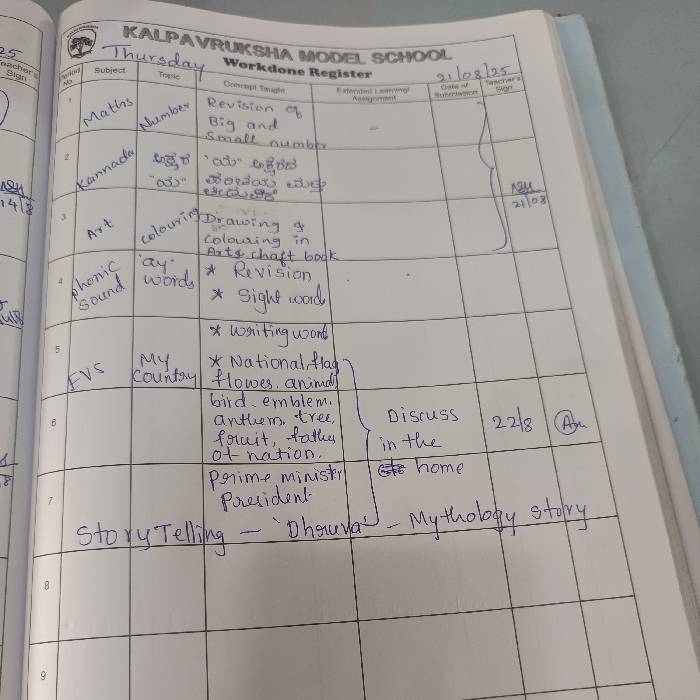 KALPAVRUKSHA MODEL SCHOOL
Thursday
Workdone Register
21/08/25
25
Teacher's Sign
Period No.
Subject
Topic
Concept Taught
Extended Learning/ Assignment
Date of Submission
Teacher's Sign
1
Maths
Number
Revision of
Big and
Small number
2
Kannada
ಅಕ್ಷರ
"ಯ"
"ಯ" ಅಕ್ಷರದ
21/08
14/8
3
Art
Colouring
Drawing &
Colouring in
Arts chaft book
4
Phonic
Sound
"ay"
words
* Revision
* Sight word
* Writing word
5
EVS
My
Country
* National, flag
flower, animal
6
bird, emblem,
anthem, tree,
fruit, father
of nation.
Discuss
in the
home
22/8
7
Prime minister
President
Story Telling - 'Dhruva' - Mythology story
8
9